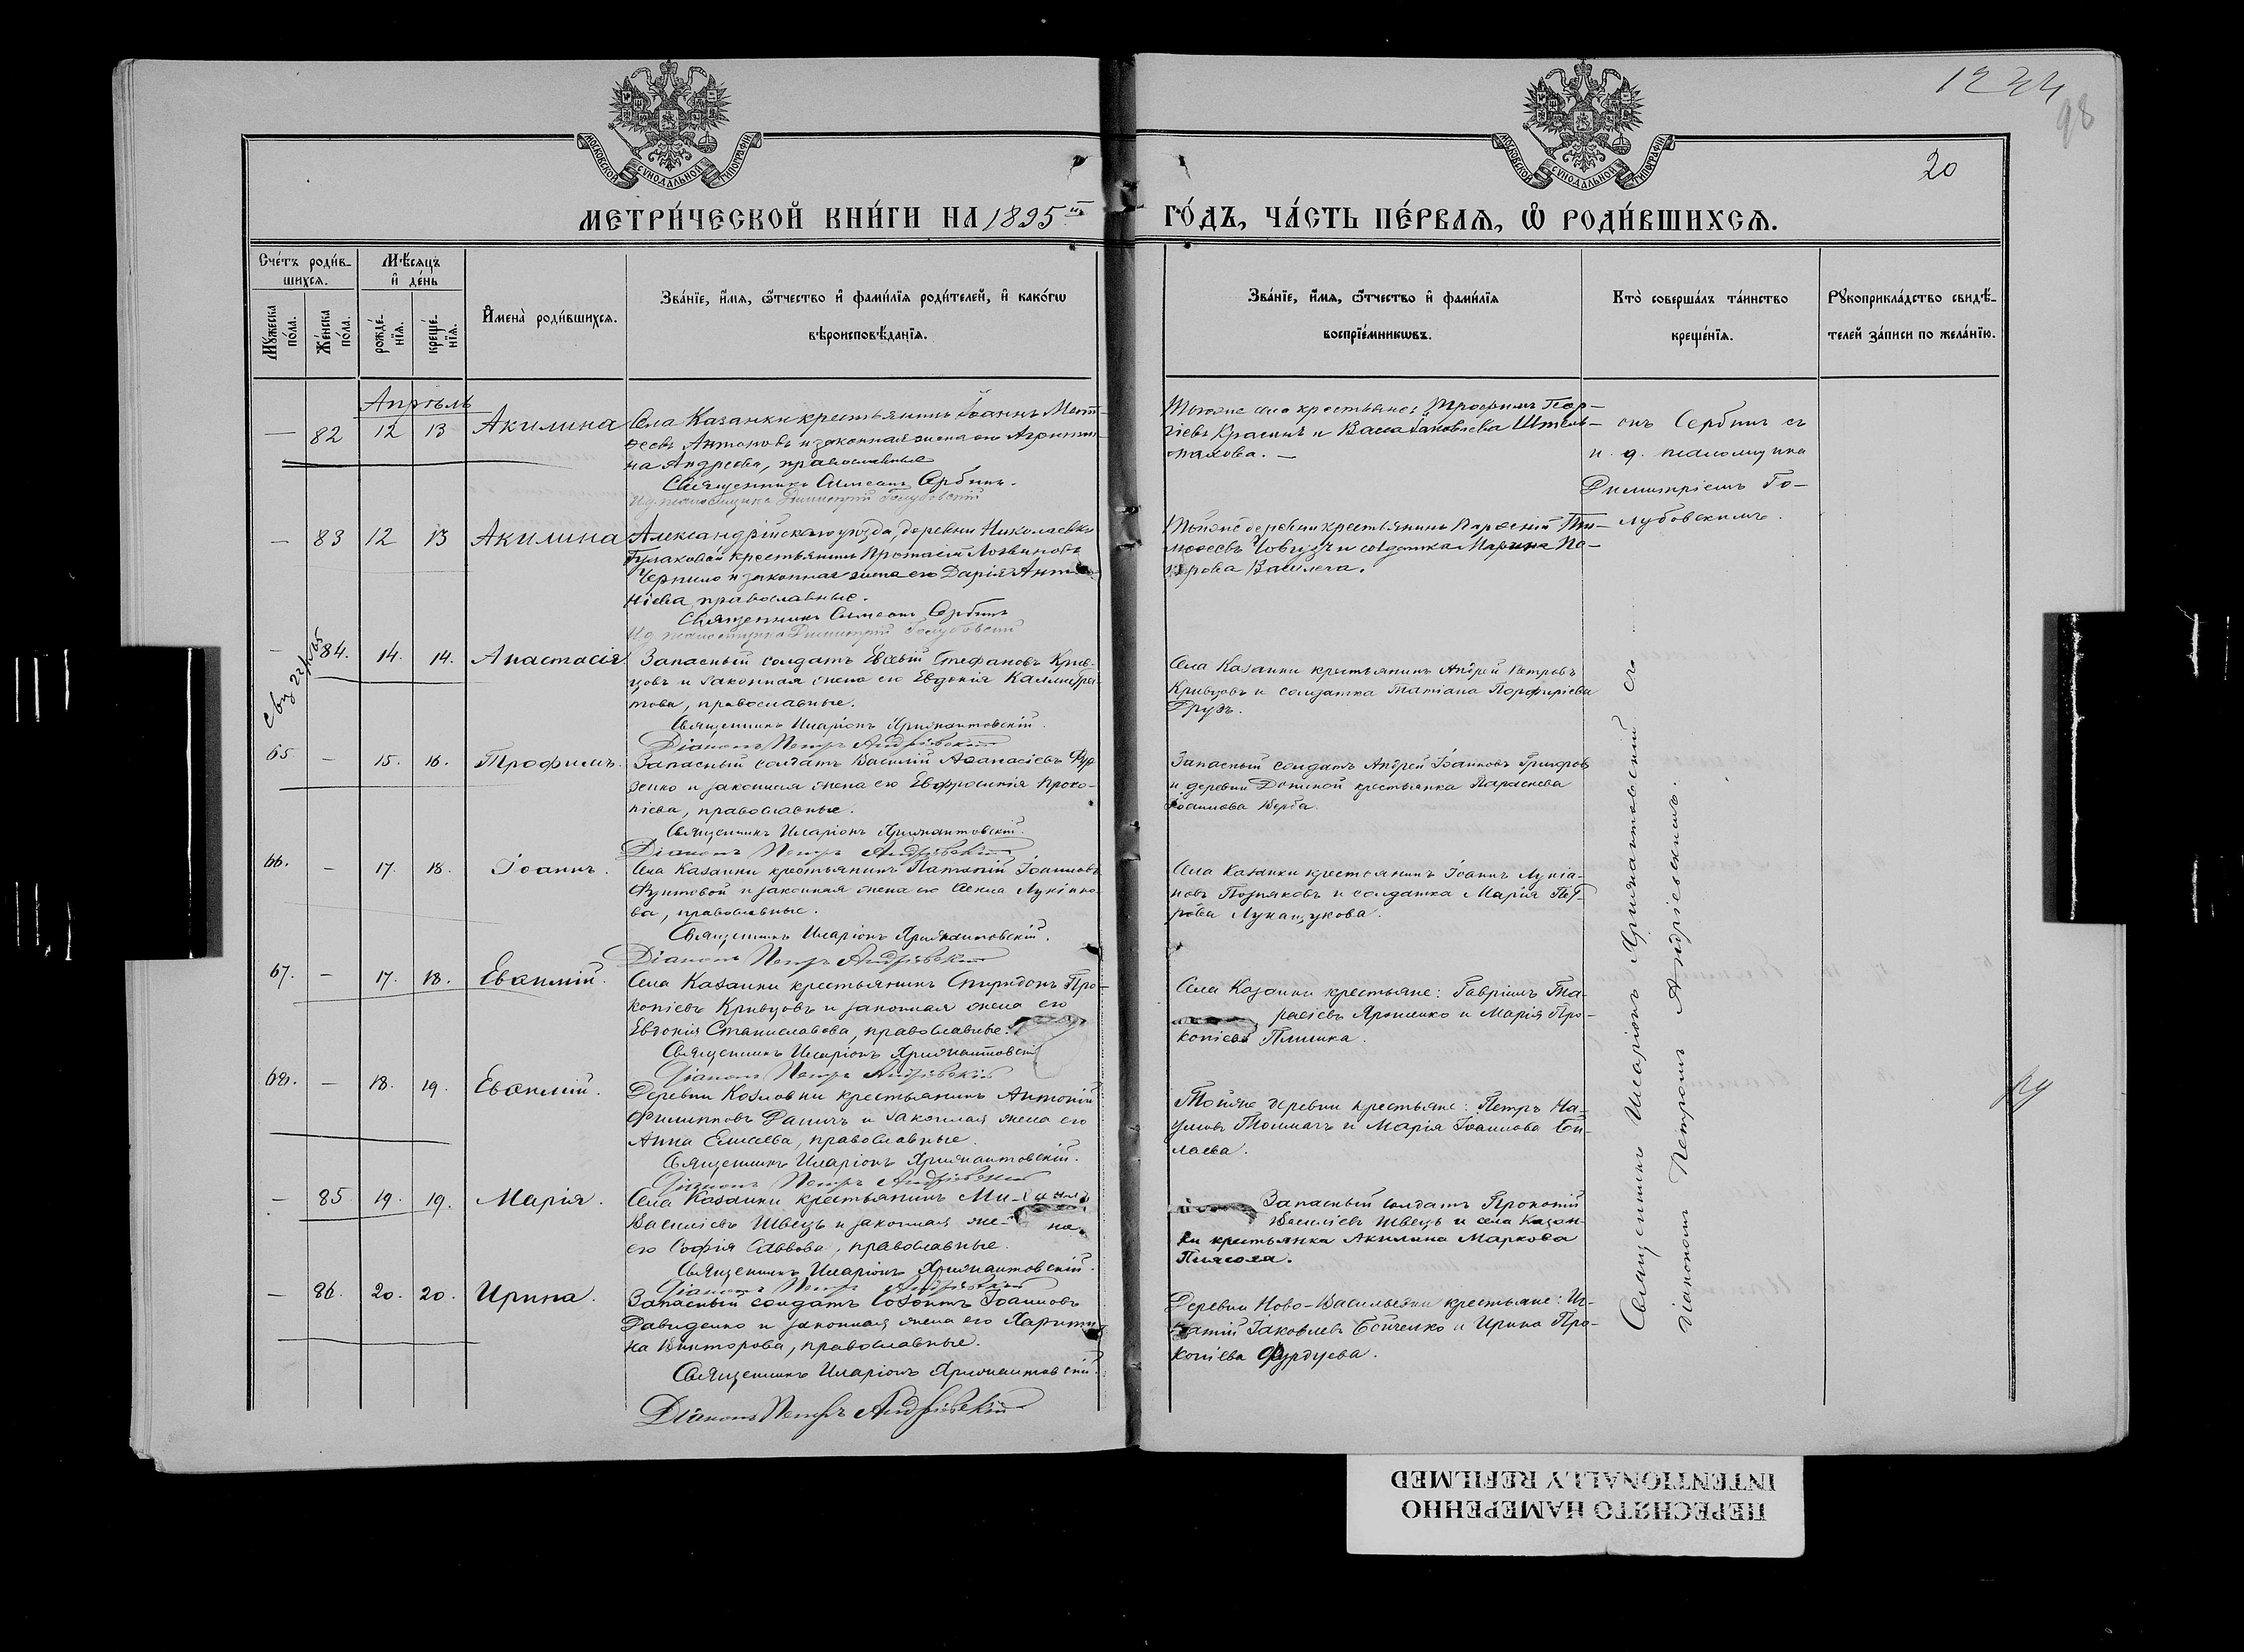 1244
98
20
МОСКОВСКОЙ СѴНОДАЛЬНОЙ ТИПОГРАФІИ
МОСКОВСКОЙ СѴНОДАЛЬНОЙ ТИПОГРАФІИ
МЕТРИ́ЧЕСКОЙ КНИ́ГИ НА 1895 й ГО́ДЪ, ЧА́СТЬ ПЕ́РВАѦ, Ѽ РОДИ́ВШИХСѦ.
Сче́тъ роди́в-
шихсѧ.
Мꙋ́жеска
по́ла.
Же́нска
по́ла.
Мѣ́сѧцъ
и҆ де́нь
рожде́-
нїѧ.
креще́-
нїѧ.
И҆мена̀ роди́вшихсѧ.
Зва́нїе, и҆́мѧ, ѻ҆́тчество и҆ фами́лїѧ роди́телей, и҆ како́гѡ
вѣроисповѣ́данїѧ.
Зва́нїе, и҆́мѧ, ѻ҆́тчество и҆ фами́лїѧ
воспрїе́мникѡвъ.
Кто̀ соверша́лъ та́инство
креще́нїѧ.
Рꙋкоприкла́дство свидѣ́-
телей за́писи по жела́нїю.
Апрѣль
— 82 12 13 Акилина
Села Казанки крестьянинъ Іоаннъ Матѳ-
ѳеевъ Антоновъ и законная жена его Агриппи-
на Андреева, православные
Священникъ Симеонъ Сербинъ.
И. д. псаломщика Димитрій Голубовскій
Тогоже села крестьяне: Трофимъ Геор-
гіевъ Красинъ и Васса Іаковлева Штель-
махова. —
онъ Сербинъ съ
и. д. псаломщика
Димитріемъ Го-
лубовскимъ.
— 83 12 13 Акилина
Александрійскаго уѣзда, деревни Николаевки
Булаховой крестьянинъ Протасій Логвиновъ
Черкило и законная жена его Дарія Анто-
ніева, православные.
Священникъ Симеонъ Сербинъ
И. д. псаломщика Димитрій Голубовскій
Тойже деревни крестьянинъ
и солдатка Марина Пе-
трова
— 84. 14. 14. Анастасія
Запасный солдатъ Евсевій Стефановъ Крив-
цовъ и законная жена его Евдокія Каллистра-
това, православные.
Священникъ Иларіонъ
Діаконъ Петръ Андріевскій
Села Казанки крестьянинъ Андрей Петровъ
Кривцовъ и солдатка Татіана Порфиріева
Грузъ.
65 — 15. 16. Трофимъ.
Запасный солдатъ Василій Аѳанасіевъ Фур-
зенко и законная жена его Евфросинія Проко-
піева, православные.
Священникъ Иларіонъ
Діаконъ Петръ Андріевскій
Запасный солдатъ Андрей Іоанновъ Григоровъ
и деревни крестьянка Параскева
Іоаннова Верба.
66. — 17. 18. Іоаннъ.
Села Казанки крестьянинъ Іоанновъ
и законная жена его Лукіано-
ва, православные.
Священникъ Иларіонъ
Діаконъ Петръ Андріевскій
Села Казанки крестьянинъ Іоаннъ Лукіа-
новъ Позняковъ и солдатка Марія Пет-
рова Лукащукова.
67. — 17. 18. Евѳимій.
Села Казанки крестьянинъ Спиридонъ Про-
копіевъ Кривцовъ и законная жена его
Евдокія Станиславова, православные.
Священникъ Иларіонъ
Діаконъ Петръ Андріевскій
Села Казанки крестьяне: Гавріилъ Та-
расіевъ Яроменко и Марія Про-
копіева
68. — 18. 19. Евѳимій.
Деревни Козловки крестьянинъ Антоній
Филипповъ Ганичъ и законная жена его
Анна Елисѣева, православные.
Священникъ Иларіонъ
Діаконъ Петръ Андріевскій
Тойже деревни крестьяне: Петръ На-
умовъ Толмачъ и Марія Іоаннова
— 85 19. 19. Марія.
Села Казанки крестьянинъ
Василіевъ Швецъ и законная же-
на
его Софія Саввова, православные.
Священникъ Иларіонъ
Діаконъ Петръ Андріевскій
Запасный солдатъ Прокопій
Василіевъ Швецъ и села Казан-
ки крестьянка Акилина Маркова
— 86. 20. 20. Ирина.
Запасный солдатъ Созонтъ Іоанновъ
Давиденко и законная жена его Харити-
на Викторова, православные.
Священникъ Иларіонъ
Діаконъ Петръ Андріевскій
Деревни Ново-Васильевки крестьяне: Иг-
натій Іаковлевъ Бойченко и Ирина Про-
копіева Фурдуева.
Священникъ Иларіонъ съ
діакономъ Петромъ Андріевскимъ.
ПЕРЕСНЯТО НАМЕРЕННО
INTENTIONALLY REFILMED